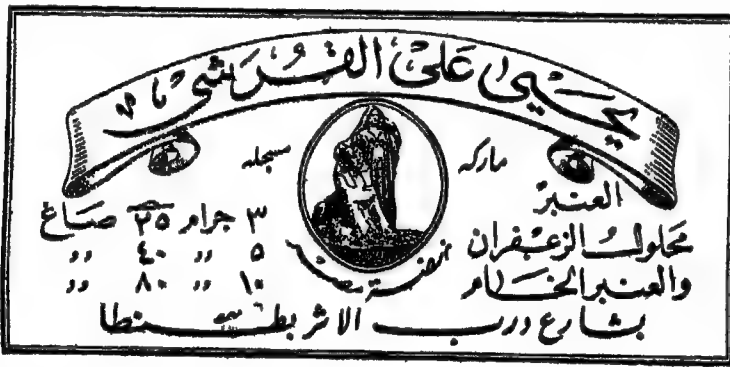 يحيى على القرشى
ماركه مسجله
العنبر
محلول الزعفران
والعنبر الخام
نهضة مصر
٣ جرام ٢٥ صاغ
٥ ״ ٤٠ ״
١٠ ״ ٨٠ ״
بشارع درب الاثر بطنطا